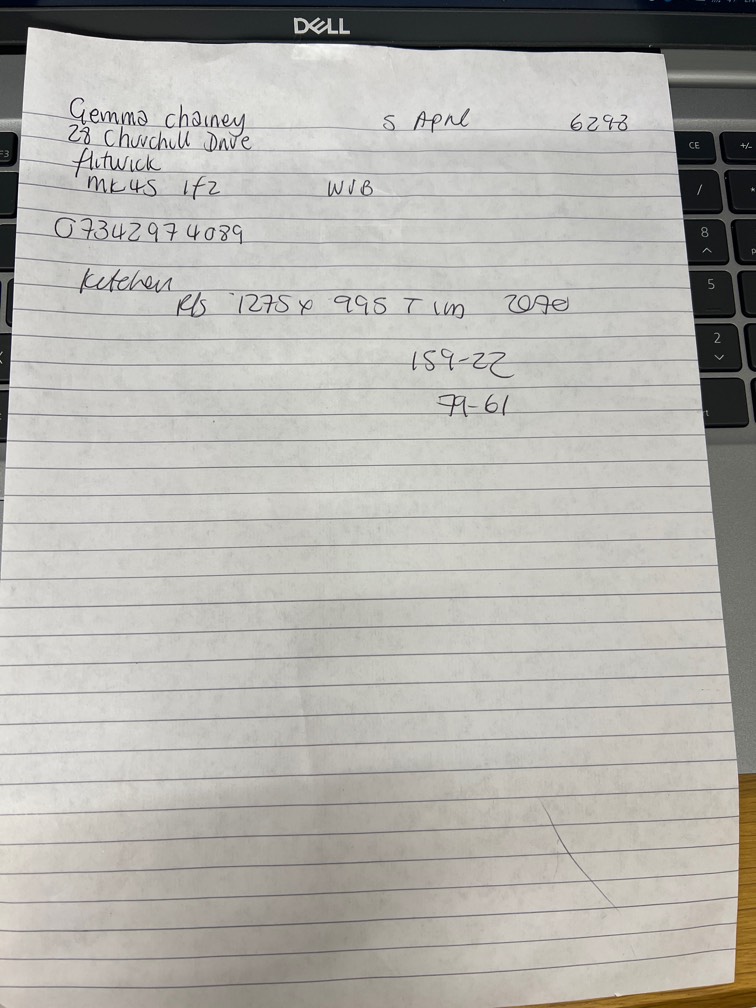 DELL
Gemma Chainey 5 April 6298
28 Churchill Drive
flitwick
MK45 1f2 WVB
07342974089
Kitchen
R/S 1275 x 995 T
159-22
79-61
F3
CE
+/-
/
8
5
2